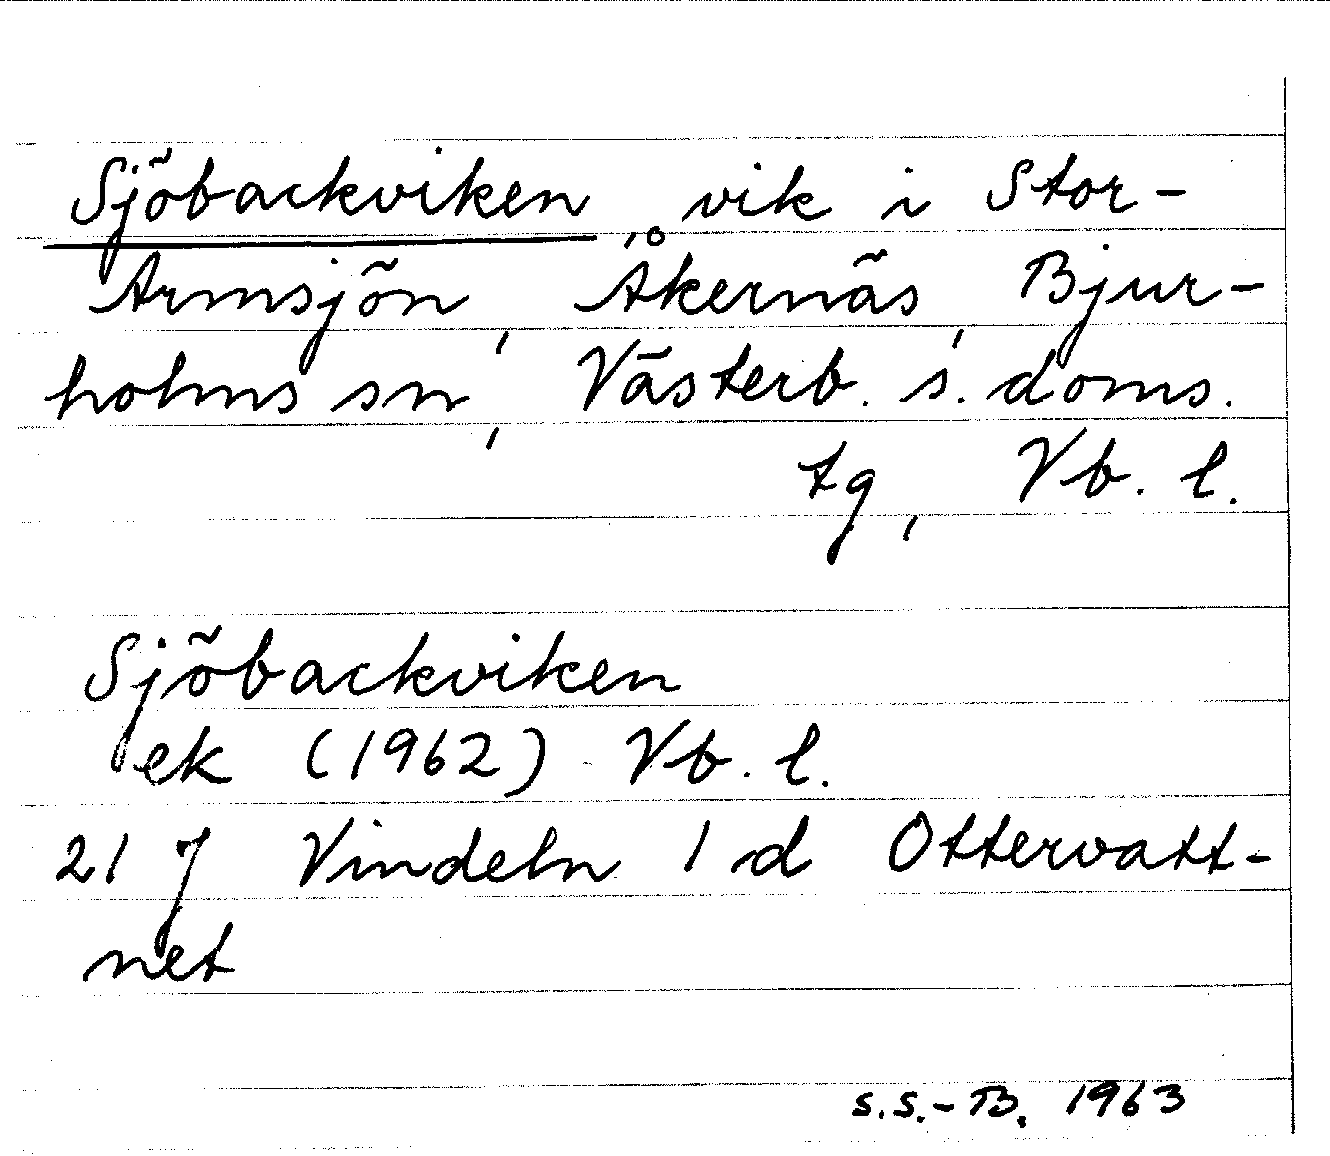 Sjöbackviken, vik i Stor-
Armsjön, Åkernäs, Bjur-
holms sn, Västerb. s. doms.
tg, Vb. l.
Sjöbackviken
ek (1962) Vb. l.
21 J Vindeln 1 d Ottervatt-
net
S.S.-B. 1963